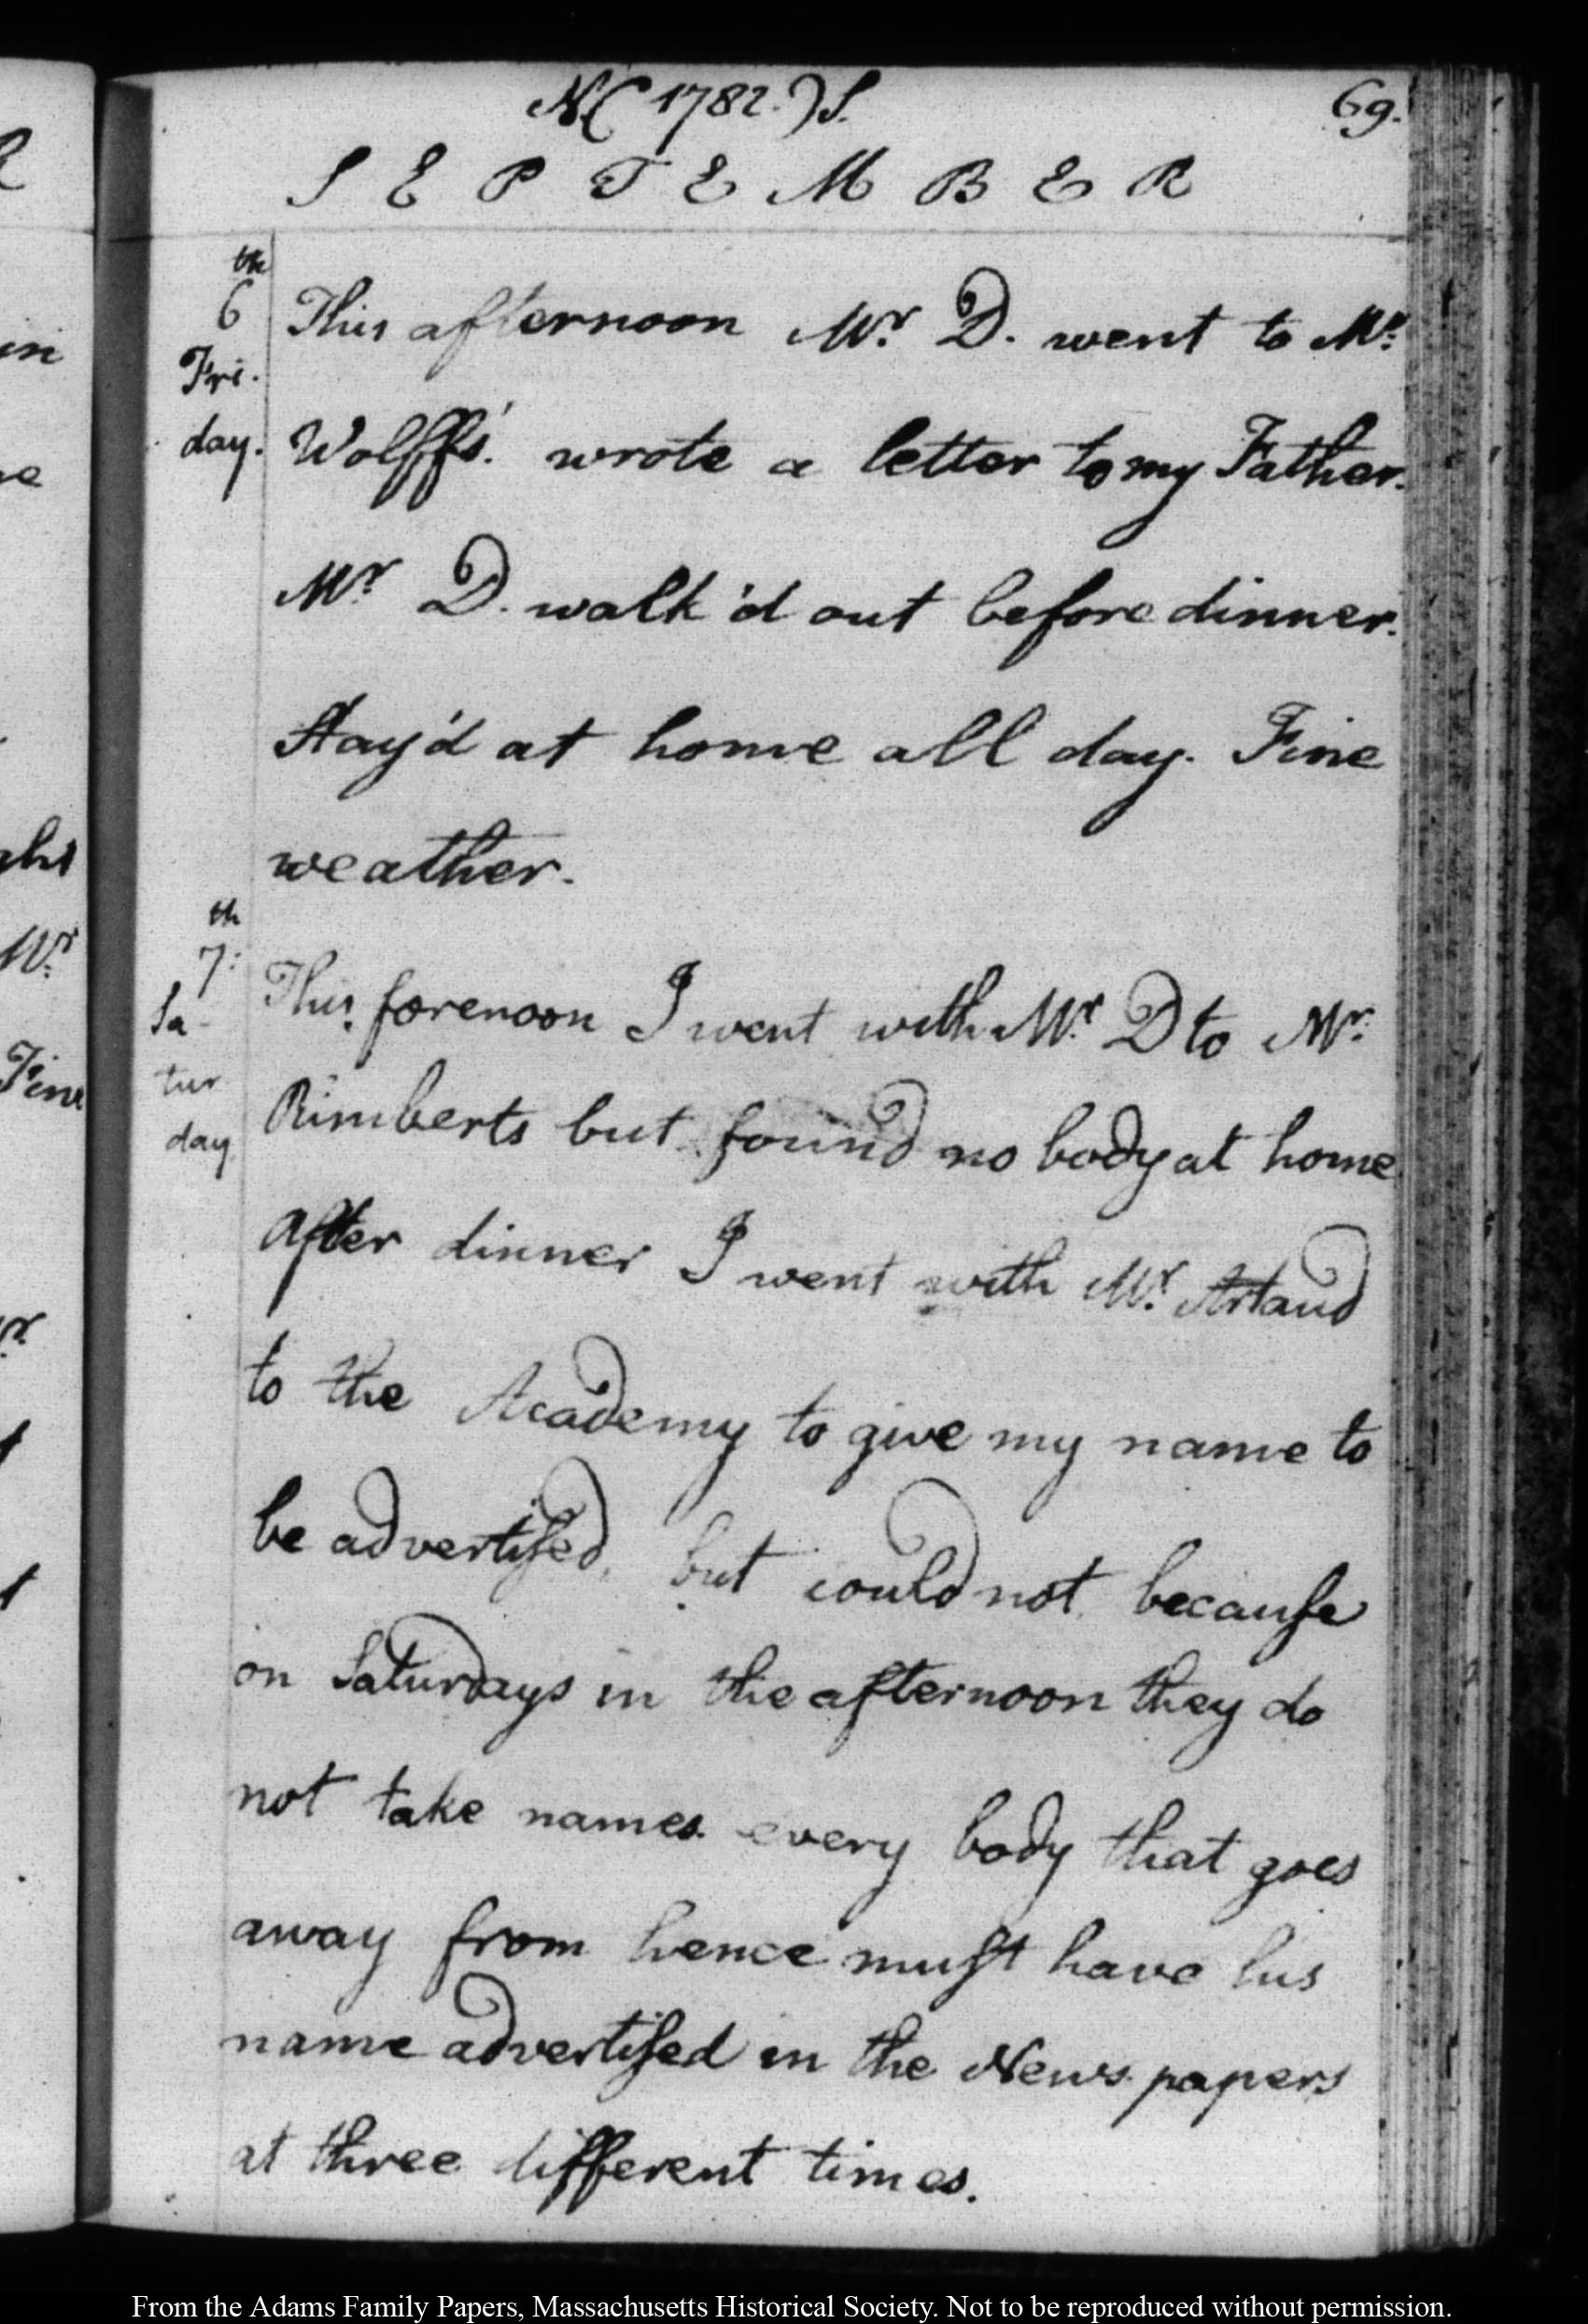 N( 1782.)S. 69.
S E P T E M B E R
th
6
Fri.
day.
This afternoon Mr. D. went to Mr.
Wolffs'. wrote a letter to my Father.
Mr D. walk'd out before dinner.
Stay'd at home all day. Fine
weather.
th
7:
Sa-
tur
day
This forenoon I went with Mr. D to Mr.
Rimberts but found no body at home
after dinner I went with Mr. Artaud
to the Academy to give my name to
be advertised, but could not because
on Saturdays in the afternoon they do
not take names. every body that goes
away from hence must have his
name advertised in the News papers
at three different times.
in
ght
Mr.
Fine
From the Adams Family Papers, Massachusetts Historical Society. Not to be reproduced without permission.